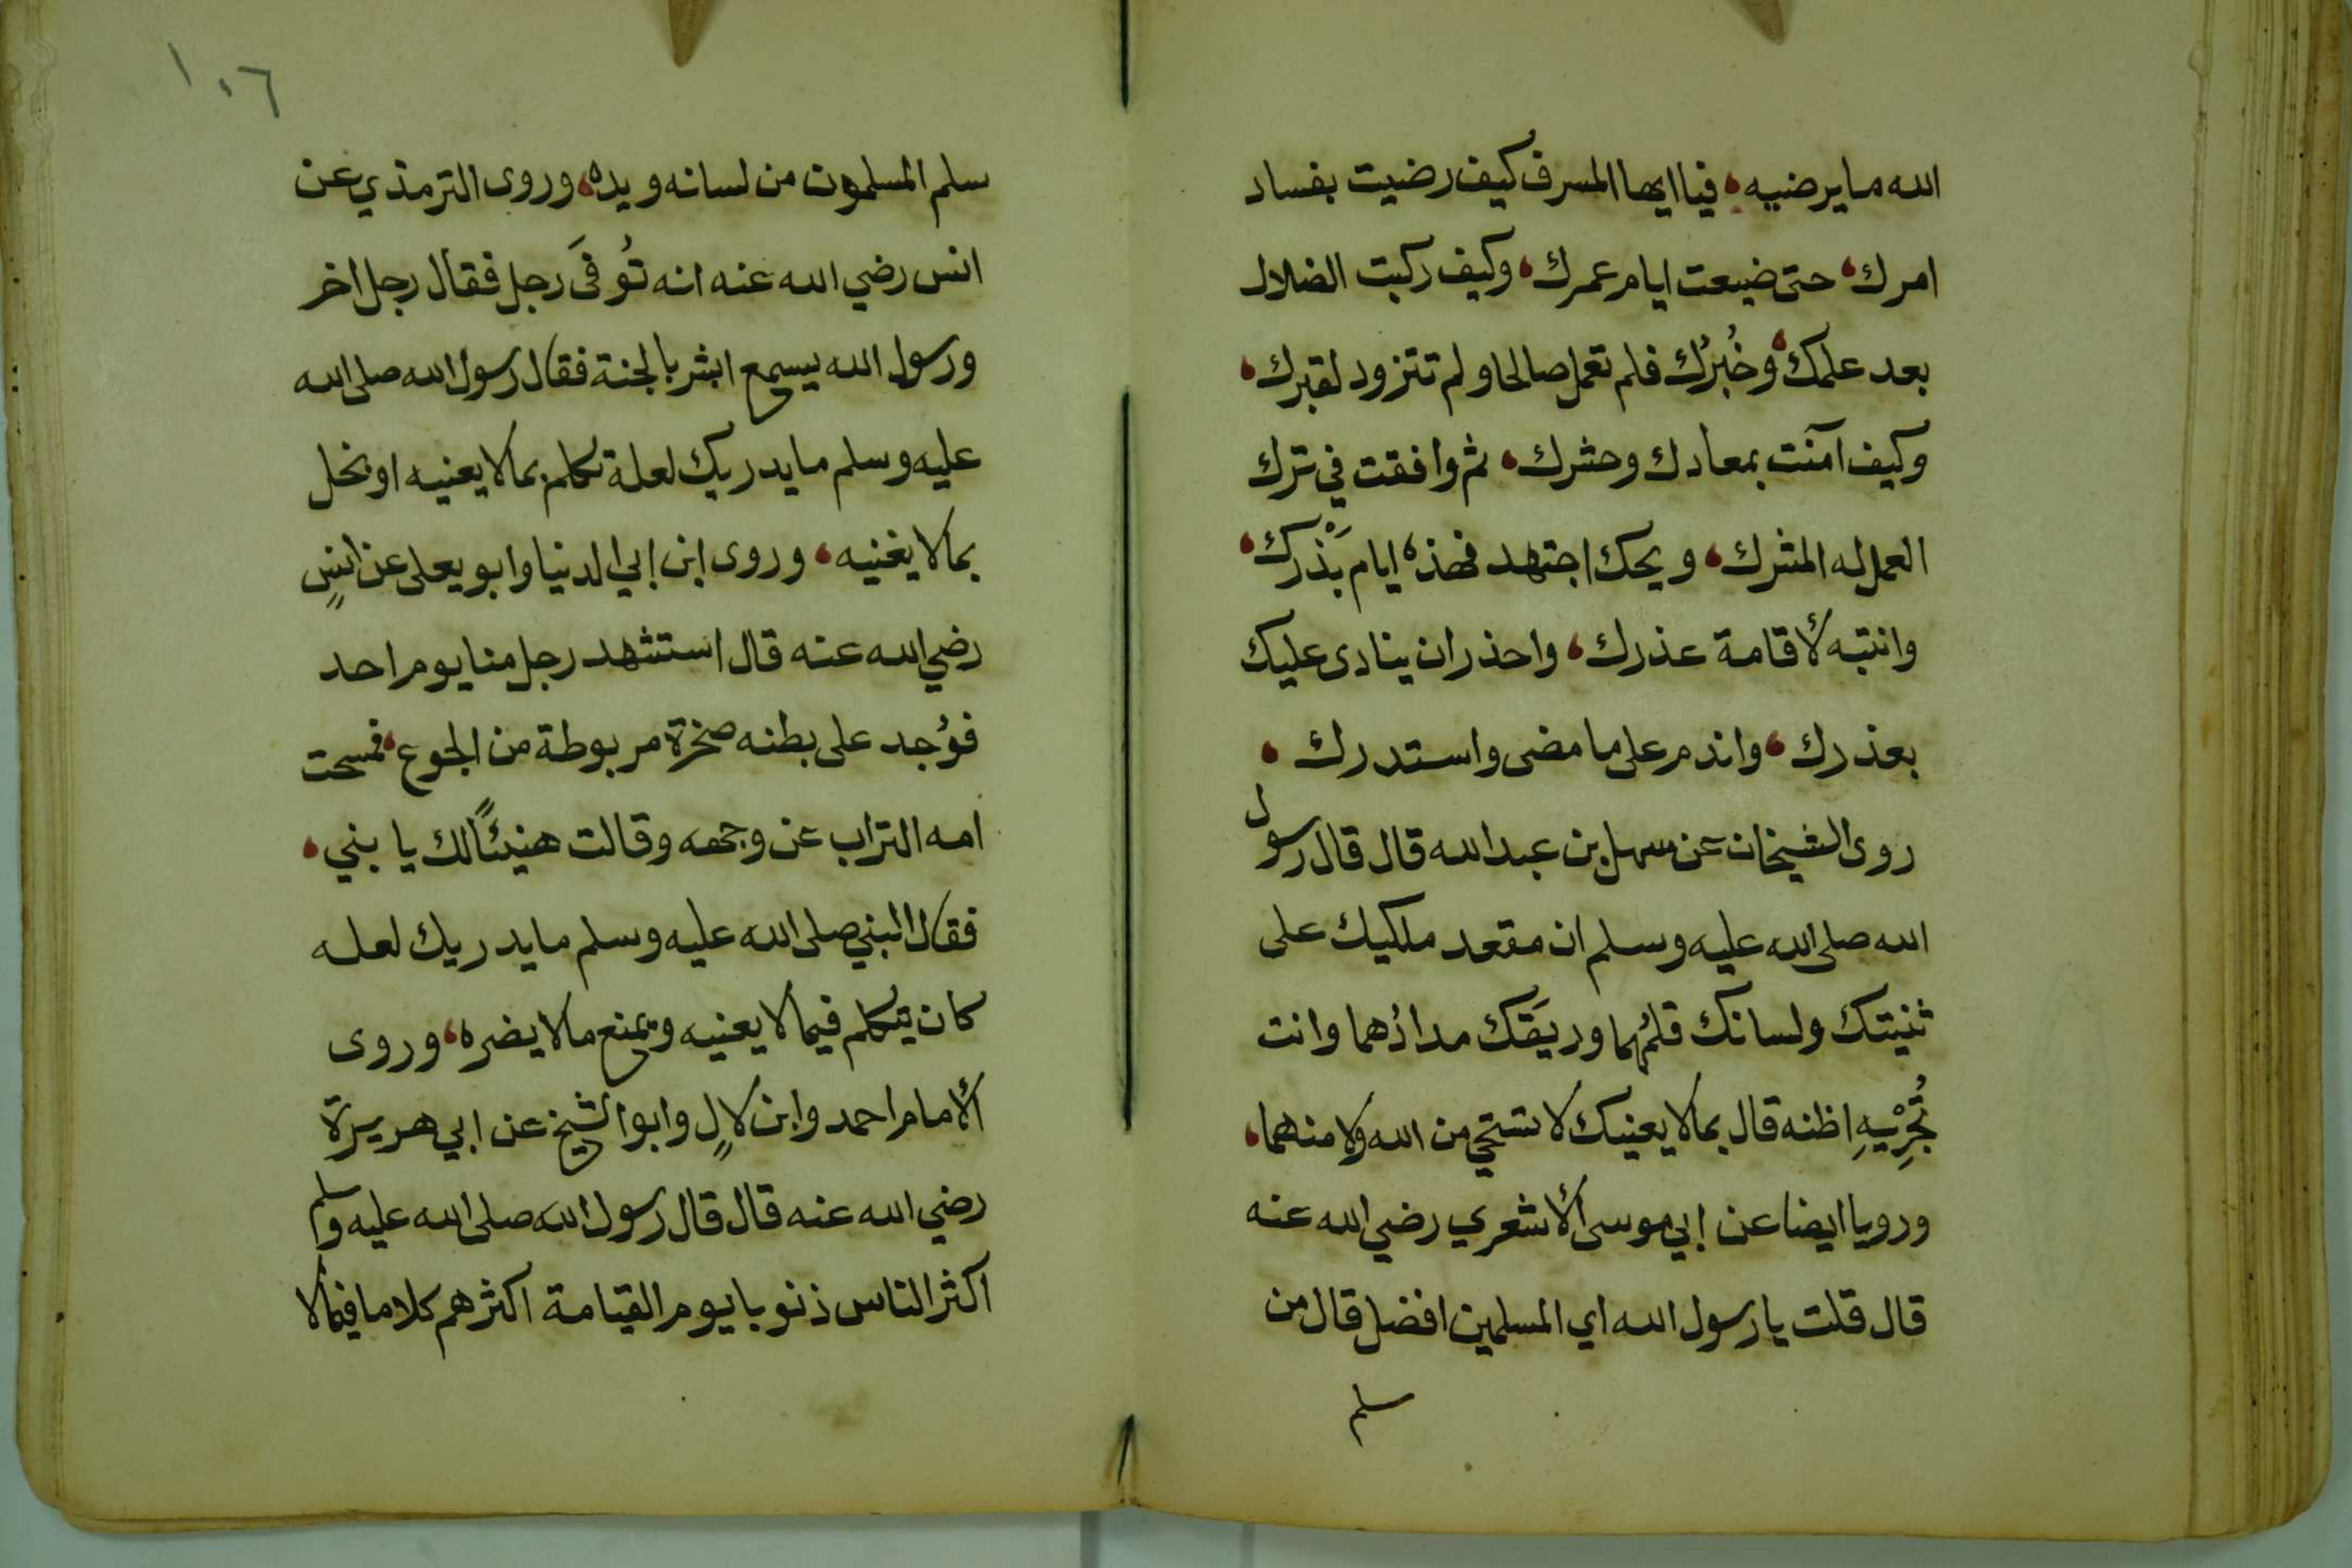 الله مايرضيه، فيا ايها المسرف كيف رضيت بفساد
امرك، حتى ضيعت ايام عمرك، وكيف ركبت الضلال
بعد علمك، وخُبرُك فلم تعمل صالحا ولم تتزود لقبرك،
وكيف آمنت بمعادك وحشرك، ثم وافقت في ترك
العمل له المشرك، ويحك اجتهد فهذه ايام بَذْرك،
وانتبه لأقامة عذرك، واحذر ان ينادى عليك
بعذرك، واندم على ما مضى واستدرك،
روى الشيخان عن سهل بن عبد الله قال قال رسول
الله صلى الله عليه وسلم ان مقعد ملكيك على
ثنيتك ولسانك قلمُهما وريقك مدادُهما وانت
تُجْرِيْهِ اظنه قال بمالا يعنيك لا تستحي من الله ولا منهما،
ورويا ايضا عن ابي موسى الأشعري رضي الله عنه
قال قلت يا رسول الله اي المسلمين افضل قال من
سلم
١٠٦
سلم المسلمون من لسانه ويده، وروى الترمذي عن
انس رضي الله عنه انه تُوفَى رجل فقال رجل اخر
ورسول الله يسمع ابشر بالجنة فقال رسول الله صلى الله
عليه وسلم مايدريك لعلة تكلم بمالا يعنيه او بخل
بمالا يغنيه، وروى ابن ابي الدنيا وابو يعلى عن انسٍ
رضي الله عنه قال استشهد رجل منا يوم احد
فوُجد على بطنه صخرة مربوطة من الجوع، فمسحت
امه التراب عن وجهه وقالت هنيئًا لك يا بني،
فقال النبي صلى الله عليه وسلم مايدريك لعله
كان يتكلم فيمالا يعنيه ويمنع مالا يضره، وروى
الأمام احمد وابن لالٍ وابو الشيخ عن ابي هريرة
رضي الله عنه قال قال رسول الله صلى الله عليه وسلم
اكثر الناس ذنوبا يوم القيامة اكثرهم كلاما فيمالا